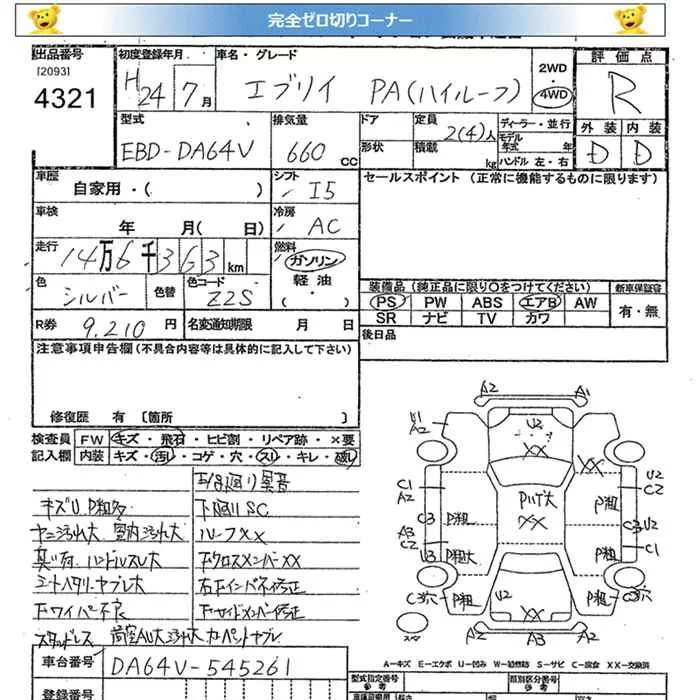 完全ゼロ切りコーナー
出品番号 初度登録年月 車名・グレード 2WD 評価点
[2093]
4321 H24 7月 エブリイ PA(ハイルーフ) 4WD R
型式 排気量 ドア 定員 2(4)人 ディーラー・並行 外装 内装
モデル年式 年
EBD-DA64V 660 cc 形状 積載 kg ハンドル 左・右 D D
車歴 自家用・( ) シフト I5 セールスポイント (正常に機能するものに限ります)
車検 年 月( 日) 冷房 AC
走行 14万6千363km 燃料 ガソリン
軽油
( ・ )
色 シルバー 色替 色コード Z2S 装備品(純正品に限り○をつけてください) 新車保証書
PS PW ABS エアB AW 有・無
SR ナビ TV カワ
R券 9,210円 名変通知期限 月 日 後日品
注意事項申告欄(不具合内容等は具体的に記入して下さい)
修復歴 有 [箇所 ]
検査員 FW キズ・飛石・ヒビ割・リペア跡・×要
記入欄 内装 キズ・汚れ・コゲ・穴・スリ・キレ・破レ
キズU P粗多 下廻りSC
ヤニ汚れ大 室内汚れ大 ルーフXX
ハンドルスレ大 FクロスメンバーXX
シートヘタリ・ヤブレ大 右Fインパネ修正
Fワイパー不良 Fサイドメンバー修正
スタッドレス カーペットヤブレ
A2 A1
U1 A2 U2 XX XX
C1 A2 P凹大 XX P粗 U2 C2
C3 P粗 C3 U2
A3 C2 U3 P粗大 P粗 C1
C3穴 P粗 U2 XX P粗 C3穴
スペア A2 A3 A2
A-キズ E-エクボ U-凹み W-補修跡 S-サビ C-腐食 XX-交換済
車台番号 DA64V-545261 型式指定番号 類別区分番号
登録番号